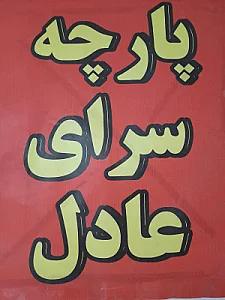 پارچه
سرای
عادل